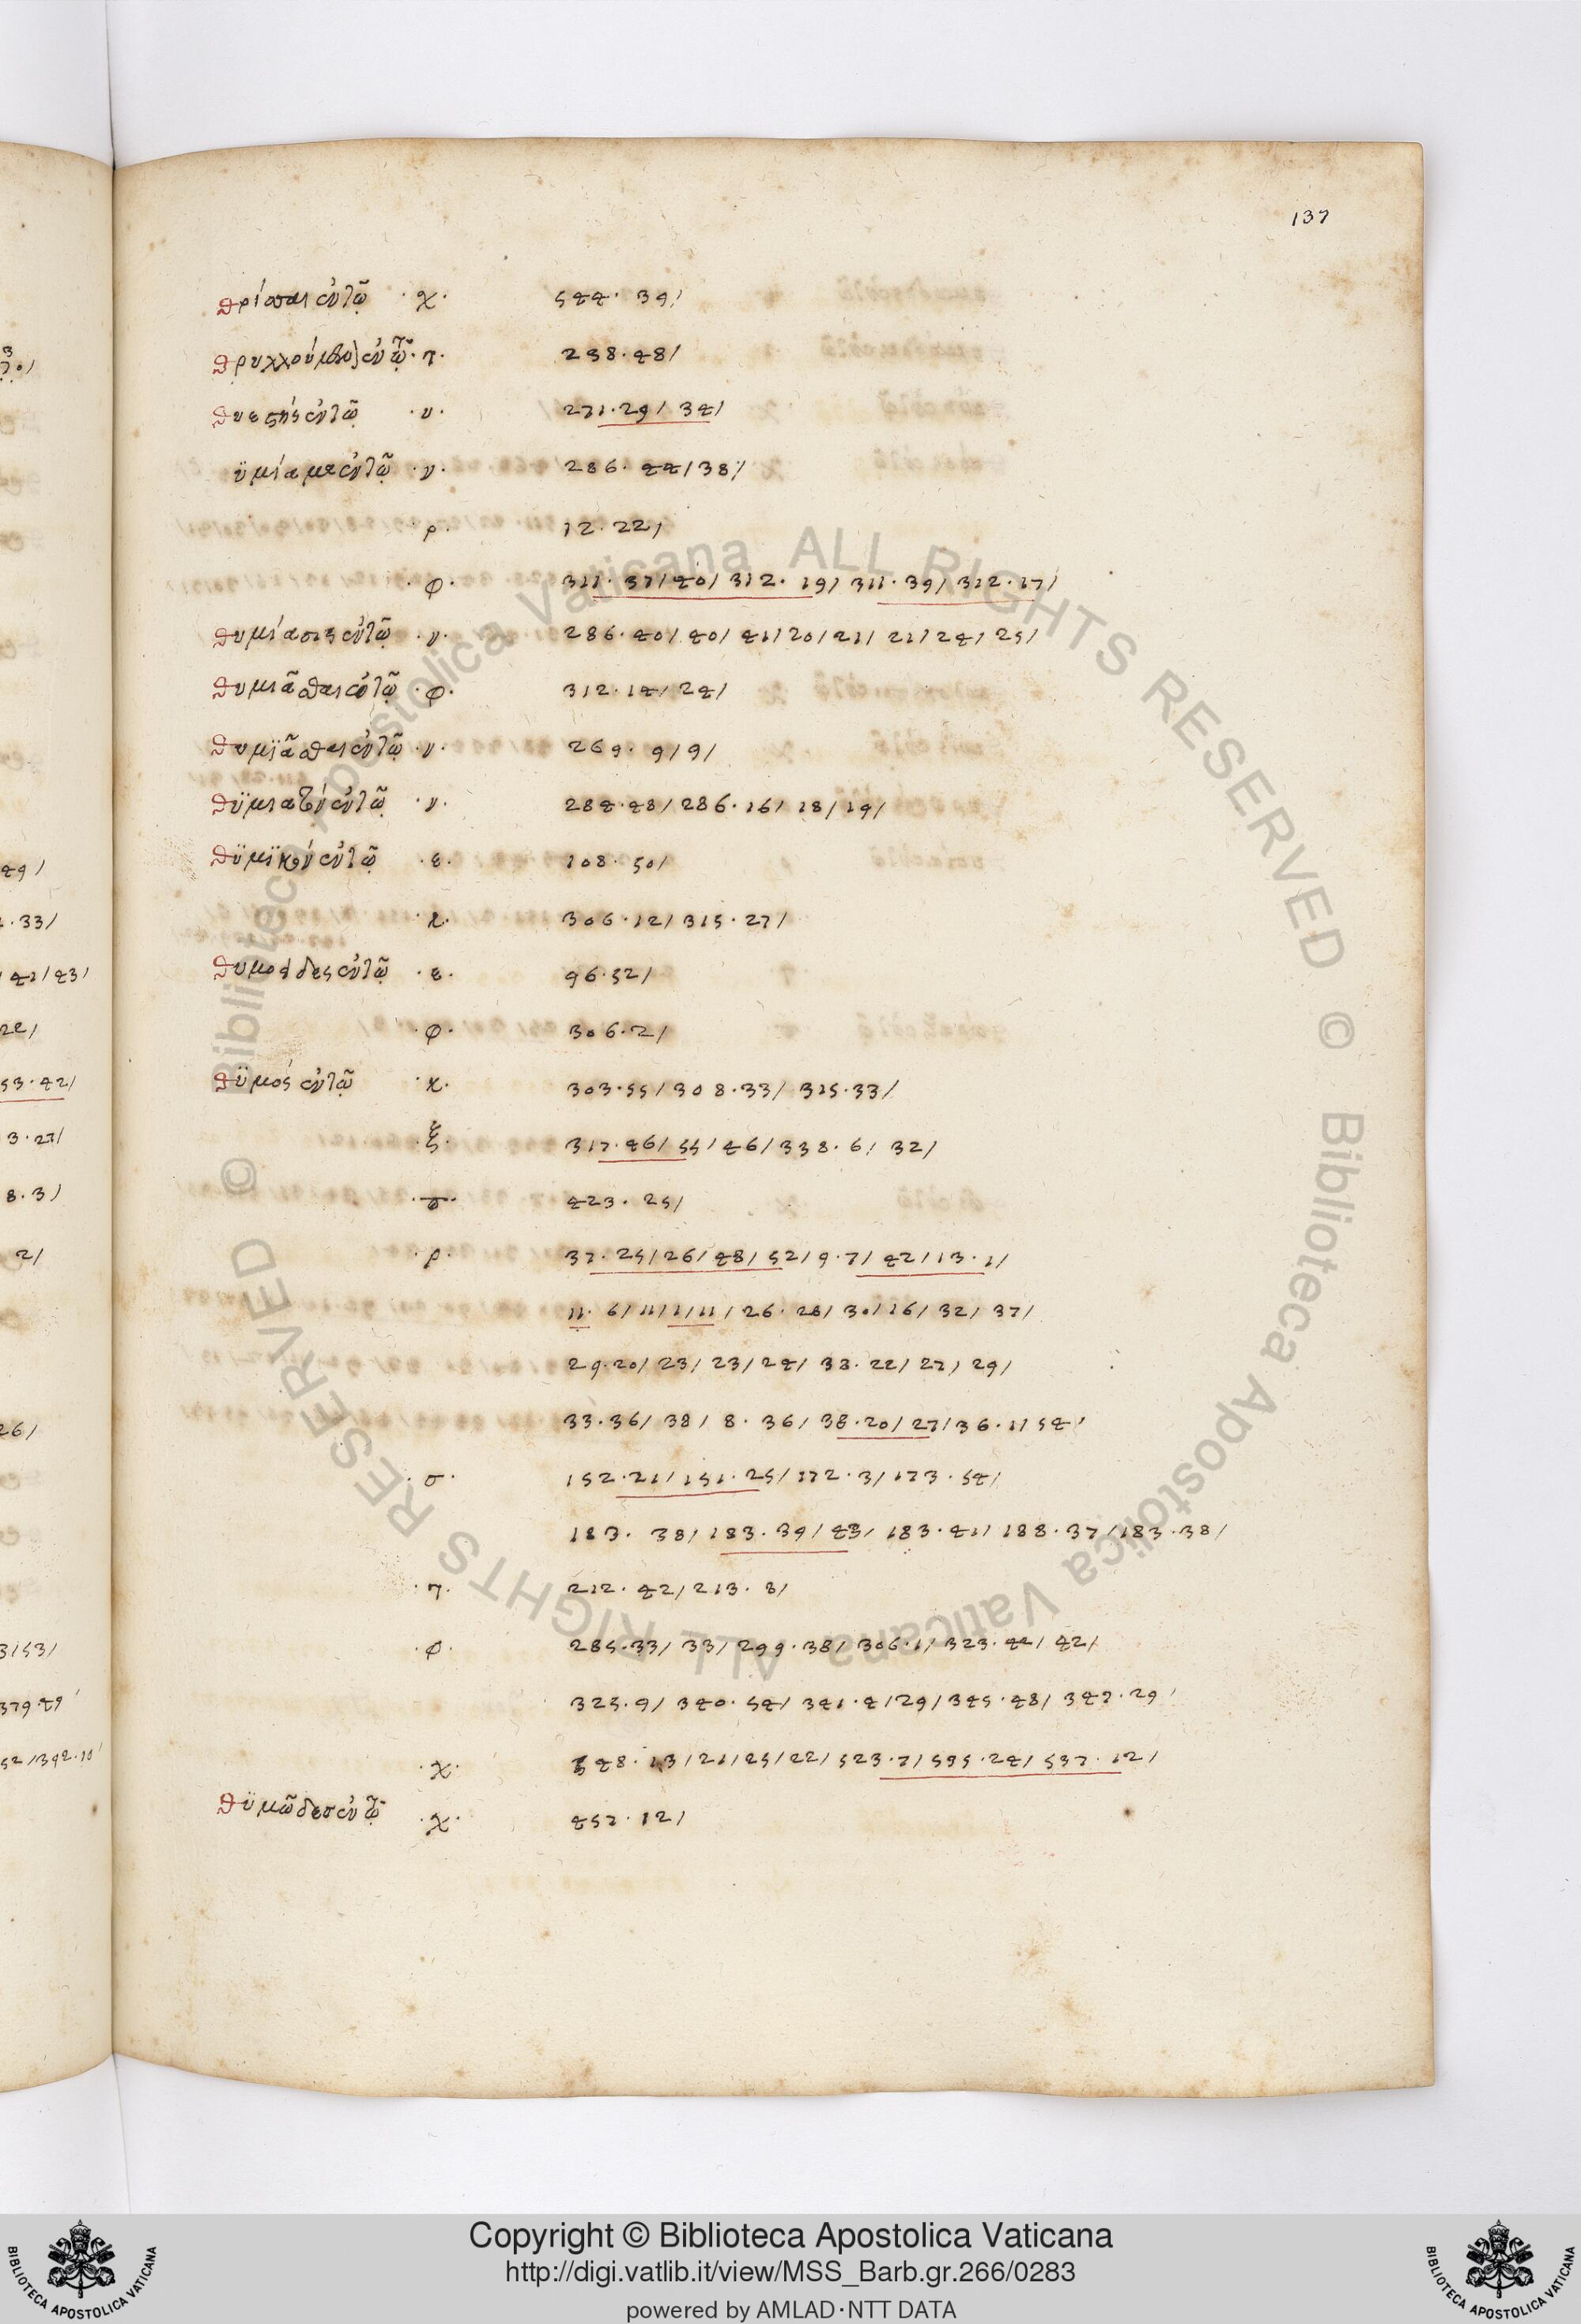 137
θρίπες ἐν τῷ · χ · 544 · 39/
ἐν τῷ · τ · 238 · 48/
Θυέστης ἐν τῷ · υ · 271 · 29/ 34/
ϋμίαμα ἐν τῷ · ν · 286 · 44/38/
· ρ · 12 · 22/
· φ · 311 · 37/40/ 312 · 19/ 311 · 39/ 312 · 17/
θυμίασις ἐν τῷ · ν · 286 · 40/ 40/ 41/20/21/ 21/24/ 25/
θυμιᾶσθαι ἐν τῷ · φ · 312 · 14/ 24/
θυμϊᾶσθαι ἐν τῷ · ν · 269 · 9/9/
θϋμιατὸν ἐν τῷ · ν · 284 · 48/286 · 16/ 18/19/
θϋμϊκὸν ἐν τῷ · ε · 108 · 50/
· κ · 306 · 12/ 315 · 27/
θυμοειδὲς ἐν τῷ · ε · 96 · 52/
· φ · 306 · 2/
θϋμὸς ἐν τῷ · κ · 303 · 55/308 · 33/ 315 · 33/
· ξ · 317 · 46/ 55/46/338 · 6/ 32/
423 · 25/
· ρ · 37 · 25/26/48/52/9 · 7/ 42/13 · 1/
11 · 6/11/1/11/26 · 28/30/16/32/37/
29 · 20/23/23/24/ 38 · 22/27/29/
33 · 36/38/8 · 36/38 · 20/27/36 · 1/54/
· σ · 152 · 21/151 · 25/172 · 3/173 · 54/
183 · 38/183 · 39/43/183 · 41/188 · 37/183 · 38/
· τ · 212 · 42/213 · 8/
· φ · 285 · 33/33/299 · 38/306 · 1/323 · 42/42/
325 · 9/340 · 54/341 · 4/29/345 · 48/347 · 29
· χ · 548 · 13/21/25/22/523 · 7/595 · 24/537 · 12/
θϋμῶδες ἐν τῷ · χ · 457 · 12/
© Biblioteca Apostolica Vaticana ALL RIGHTS RESERVED © Biblioteca Apostolica Vaticana ALL RIGHTS RESERVED
Copyright © Biblioteca Apostolica Vaticana
http://digi.vatlib.it/view/MSS_Barb.gr.266/0283
powered by AMLAD·NTT DATA
BIBLIOTECA APOSTOLICA VATICANA
BIBLIOTECA APOSTOLICA VATICANA